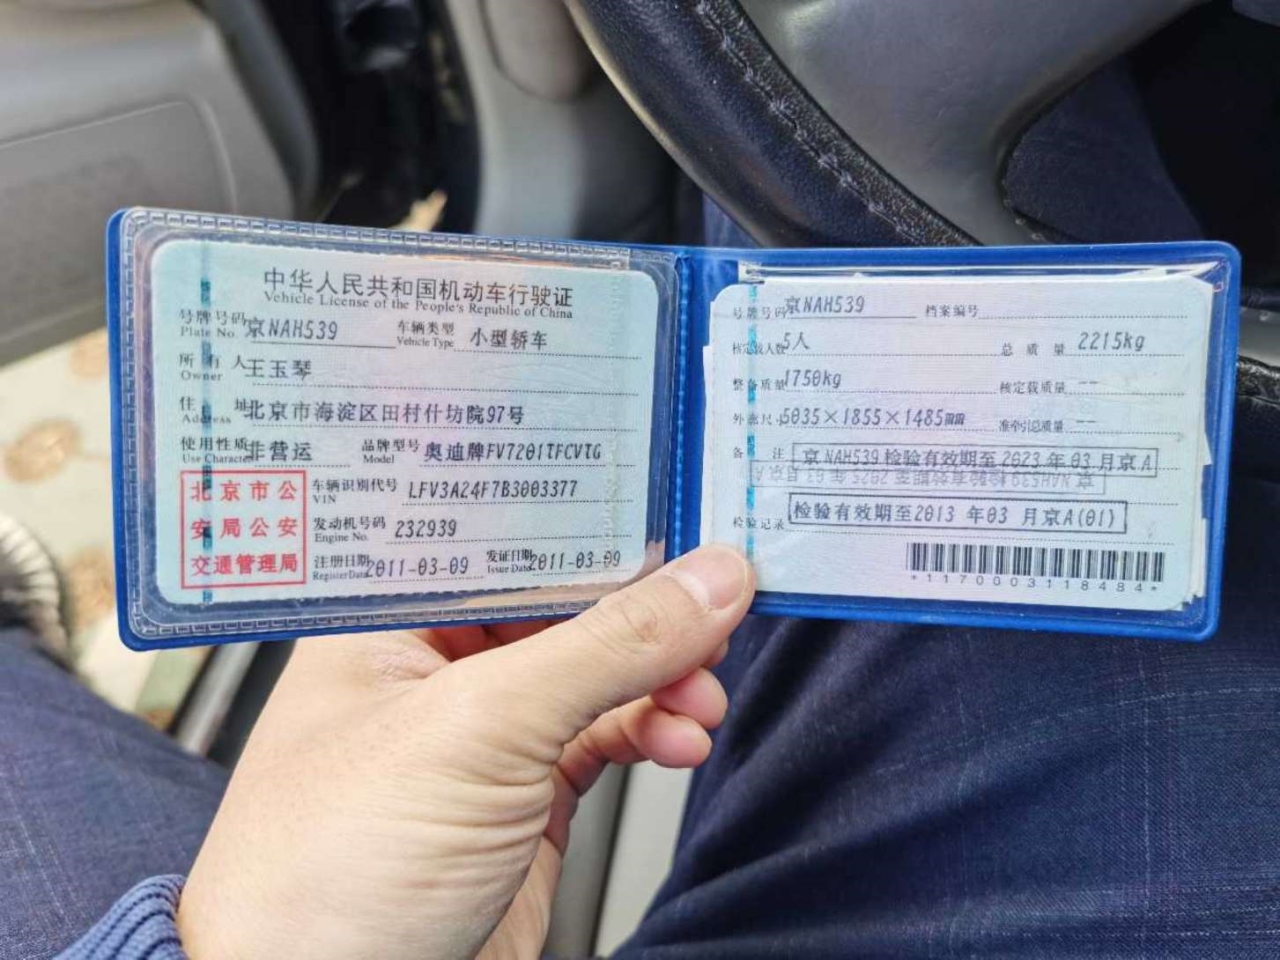 中华人民共和国机动车行驶证
Vehicle License of the People's Republic of China
号牌号码 京NAH539 车辆类型 小型轿车
Plate No. Vehicle Type
所有人 王玉琴
Owner
住址 北京市海淀区田村什坊院97号
Address
使用性质 非营运 品牌型号 奥迪牌FV7201TFCVTG
Use Character Model
北京市公安局公安交通管理局
车辆识别代号 LFV3A24F7B3003377
VIN
发动机号码 232939
Engine No.
注册日期 2011-03-09 发证日期 2011-03-09
Register Date Issue Date
号牌号码 京NAH539 档案编号
核定载人数 5人 总质量 2215kg
整备质量 1750kg 核定载质量 --
外廓尺寸 5035×1855×1485mm 准牵引总质量 --
备注 京NAH539检验有效期至2023年03月京A
京NAH539检验有效期至2025年03月京A
检验记录 检验有效期至2013年03月京A(01)
*1170003118484*